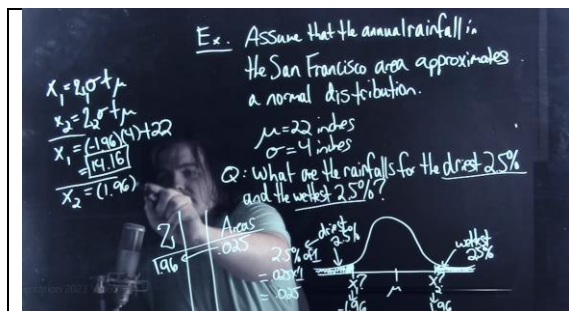 Ex. Assume that the annual rainfall in
the San Francisco area approximates
a normal distribution.
μ=22 inches
σ=4 inches
Q: What are the rainfalls for the driest 2.5%
and the wettest 2.5%?
x₁=z₁σ+μ
x₂=z₂σ+μ
x₁=(-1.96)(4)+22
=14.16
x₂=(1.96)
z Areas
1.96 .025
2.5% of 1
=.025×1
=.025
driest
2.5%
wettest
2.5%
x₁? μ x₂?
-1.96 1.96